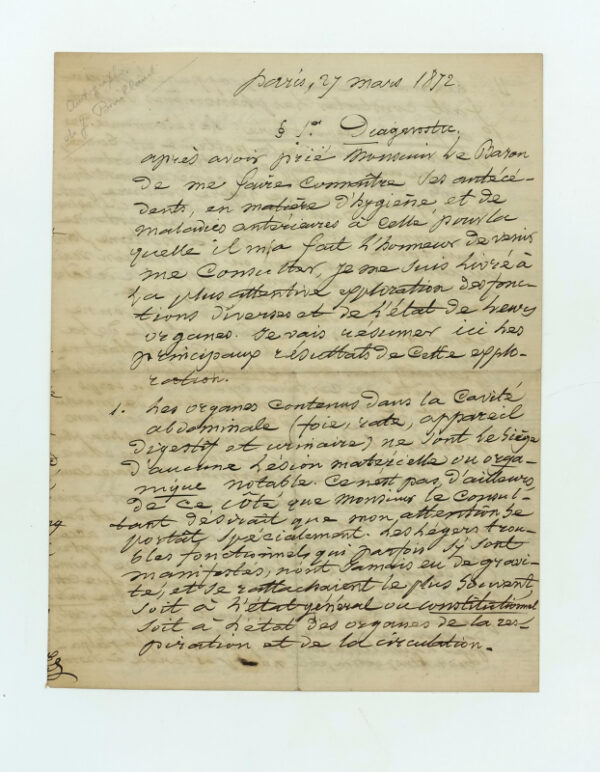 Paris, 27 mars 1872.
§ 1er Diagnostic.
après avoir prié Monsieur le Baron
de me faire connaître ses antécé-
dents, en matière d'hygiène et de
maladies antérieures à celle pour la
quelle il m'a fait l'honneur de venir
me consulter, je me suis livré à
la plus attentive exploration des fonc-
tions diverses et de l'état de leurs
organes. Je vais résumer ici les
principaux résultats de cette explo-
ration.
1. Les organes contenus dans la cavité
abdominale (foie, rate, appareil
digestif et urinaire) ne sont le siège
d'aucune lésion matérielle ou orga-
nique notable. Ce n'est pas d'ailleurs
de ce côté que Monsieur le Consul-
tant désirait que mon attention se
portât spécialement. Les légers trou-
bles fonctionnels qui parfois s'y sont
manifestés, n'ont jamais eu de gravi-
té, et se rattachaient le plus souvent
soit à l'état général ou constitutionnel
soit à l'état des organes de la res-
piration et de la circulation.